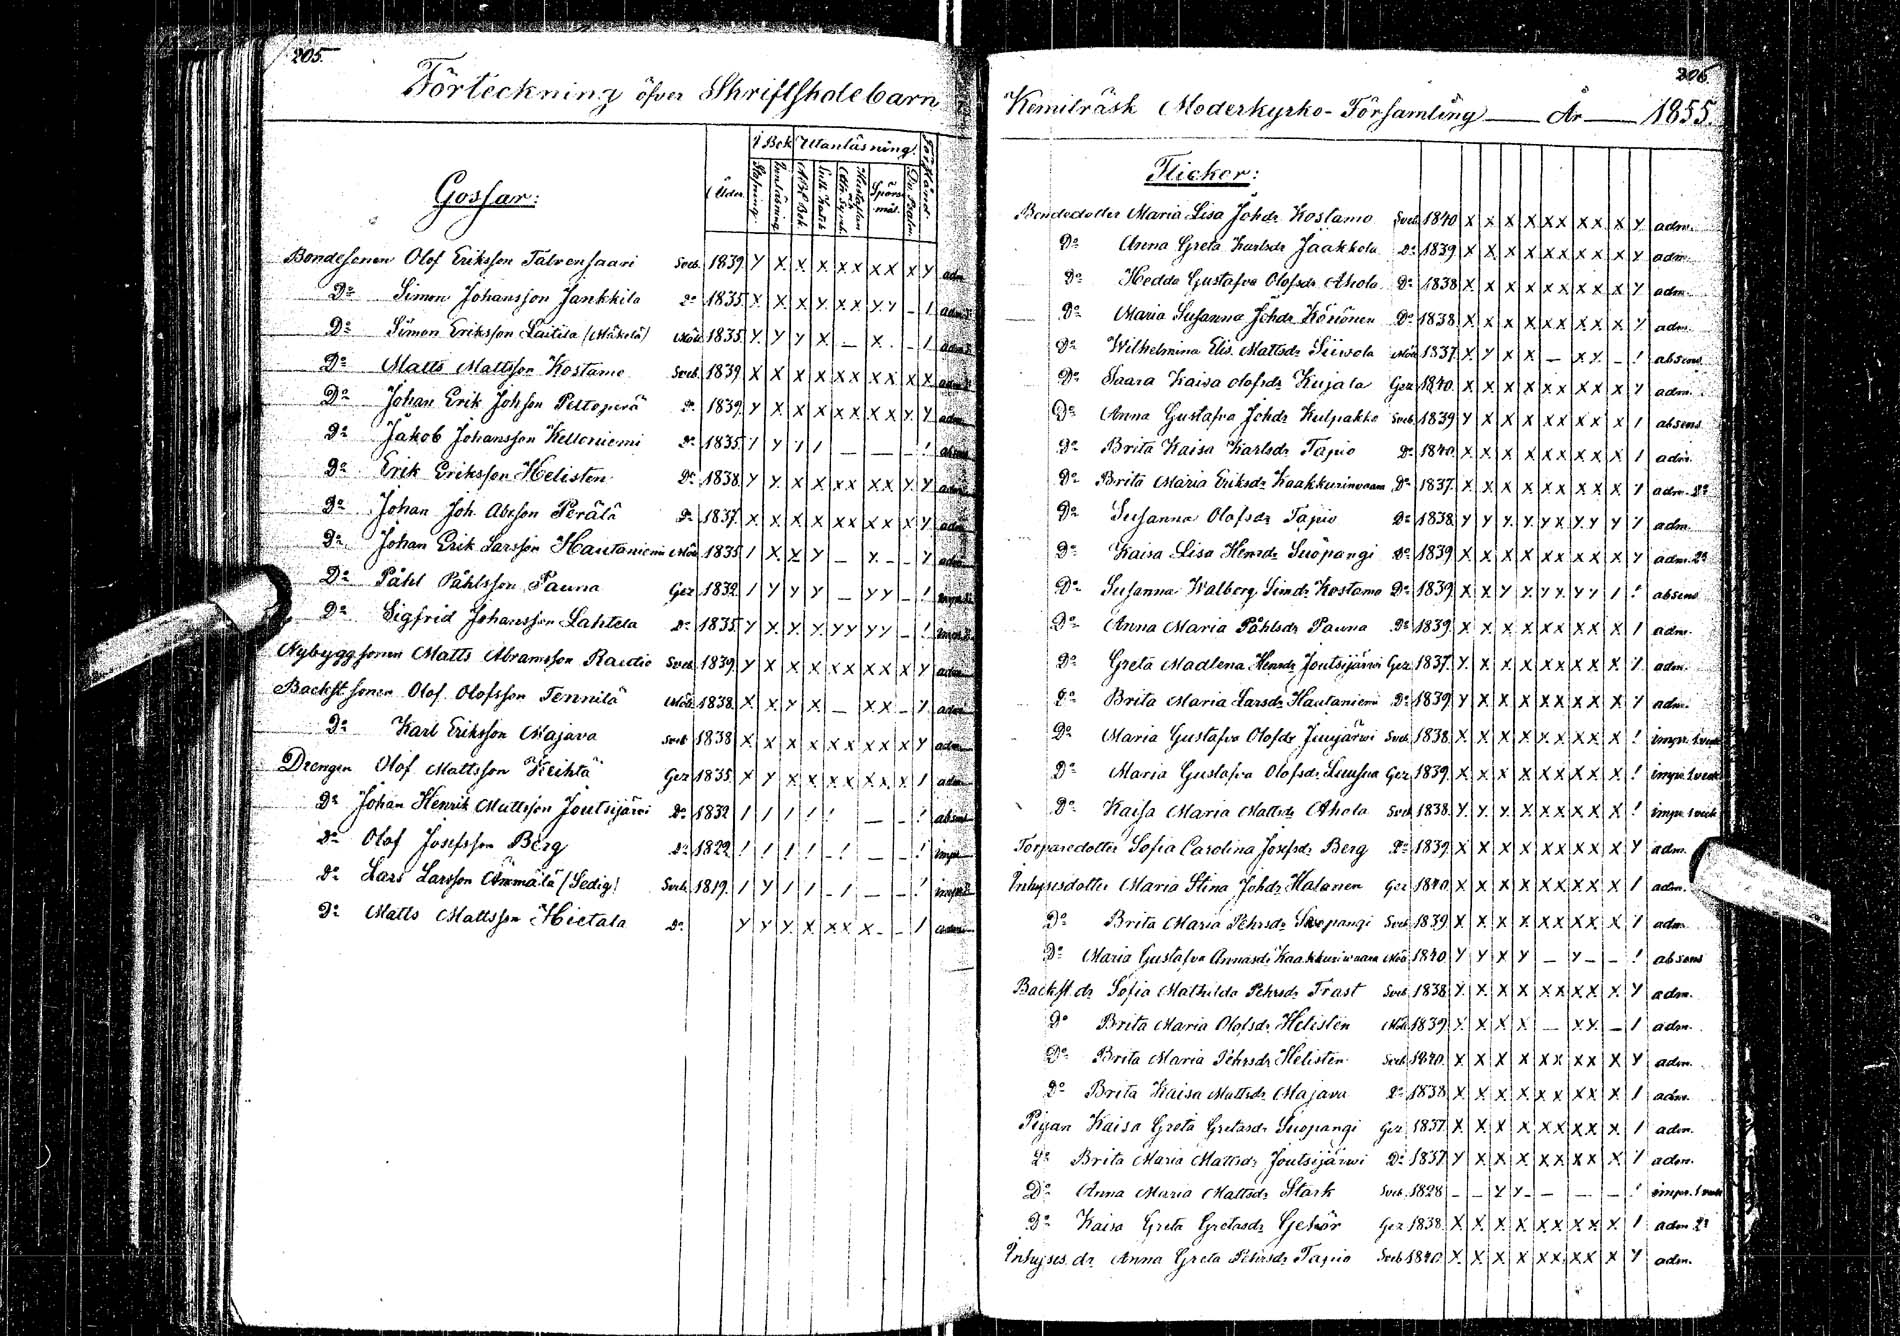 205.
Förteckning öfver Skriftskolebarn
Gossar:
Ålder
I Bok
Utanläsning.
Förstånd
Stafning.
Innläsning
A.B.C. Bok
Luth. Kat.
Hustaflan
Spörs-
mål.
Dav. Psalm.
Bondesonen Olof Eriksson Talvensaari Sorb. 1839 Y X X X X X X X X Y adm.
Do Simon Johansson Jankkila Do 1835 X X X Y X X Y Y - 1
Do Simon Eriksson Laitila (Mäkelä) 1835 Y Y Y X - X - 1
Do Matts Mattsson Kostamo Sorb. 1839 X X X X X X X X X X
Do Johan Erik Johsson Peltoperä Do 1839 Y X X X X X X X Y Y adm.
Do Jakob Johansson Kelloniemi Do 1835 1 Y 1 1 - - - ! absens
Do Erik Eriksson Helisten Do 1838 Y Y X X X X X X Y Y adm.
Do Johan Joh. Abrsson Perälä Do 1837 X X X X X X X X X Y adm.
Do Johan Erik Larsson Hautaniemi 1835 1 X X Y - X - - Y adm.
Do Påhl Påhlsson Pauna Gez 1832 1 Y Y Y - Y Y - !
Do Sigfrid Johansson Lahtela Do 1835 Y X Y Y Y Y Y Y - !
Nybyggsonen Matts Abramsson Rautio Sorb. 1839 Y X X X X X X X X Y adm.
Backst. sonen Olof Olofsson Tennilä 1838 X X Y X - X X - Y adm.
Do Karl Eriksson Majava Sorb 1838 X X X X X X X X X Y adm.
Drengen Olof Mattsson Keihtä Gez 1835 X Y X X X X X X X 1 adm.
Do Johan Henrik Mattsson Joutsijärvi Do 1832 1 1 1 1 ! - - ! absens
Do Olof Josefsson Berg Do 1822 ! ! ! ! - ! - - ! impr.
Do Lars Larsson Ämmälä (Ledig) Sorb. 1819 1 Y 1 1 - 1 - - !
Do Matts Mattsson Hietala Do Y Y X X X X X - - 1 adm.
206
Kemiträsk Moderkyrko-Församling — År — 1855.
Flickor:
Bondedotter Maria Lisa Johdr Kostamo Sorb. 1840 X X X X X X X X X Y adm.
Do Anna Greta Karlsdr Jaakkola Do 1839 X X X X X X X X X Y adm.
Do Hedda Gustafva Olofsdr Ahola Do 1838 X X X X X X X X X Y adm.
Do Maria Susanna Johdr Könönen Do 1838 X X X X X X X X X Y adm.
Do Wilhelmina Elis. Mattsdr Siivola 1837 X Y X X - X Y - ! absens
Do Saara Kaisa Olofsdr Kujala Gez 1840 X X X X X X X X X Y adm.
Do Anna Gustafva Johdr Kulpakko Sorb. 1839 Y X X X X X X X X 1 absens
Do Brita Kaisa Karlsdr Tapio Do 1840 X X X X X X X X X 1 adm.
Do Brita Maria Eriksdr Kaakkurinvaara Do 1837 X X X X X X X X X 1 adm. 2o
Do Susanna Olofsdr Tapio Do 1838 Y Y Y Y Y X Y Y Y 1 adm.
Do Kaisa Lisa Henrsdr Suopangi Do 1839 X X X X X X X X X Y adm. 2o
Do Susanna Walborg Simdr Kostamo Do 1839 X X Y Y Y X Y Y 1 ! absens
Do Anna Maria Påhlsdr Pauna Do 1839 X X X X X X X X X 1 adm.
Do Greta Madlena Henrsdr Joutsijärvi Gez 1837 Y X X X X X X X X Y adm.
Do Brita Maria Larsdr Hautaniemi Do 1839 Y X X X X X X X X Y adm.
Do Maria Gustafva Olofsdr Juujärvi Sorb. 1838 X X X X X X X X X ! impr. 1 veck
Do Maria Gustafva Olofsdr Luusua Gez 1839 X X X X X X X X X ! impr. 1 veck
Do Kaisa Maria Mattsdr Ahola Sorb 1838 Y Y Y X X X X X X ! impr. 1 veck
Torparedotter Sofia Carolina Josefsdr Berg Do 1839 X X X X X X X X X Y adm.
Inhysesdotter Maria Stina Johdr Halanen Gez 1840 X X X X X X X X X 1 adm.
Do Brita Maria Pehrsdr Suopangi Sorb 1839 X X X X X X X X X 1 adm
Do Maria Gustafva Annasdr Kaakkurivaara 1840 Y Y X Y - Y - - ! absens
Backst. dr Sofia Mathilda Pehrsdr Trast Sorb. 1838 Y X X X X X X X X Y adm.
Do Brita Maria Olofsdr Helisten 1839 X X X X - X X - 1 adm.
Do Brita Maria Pehrsdr Helisten Sorb. 1840 X X X X X X X X X Y adm.
Do Brita Kaisa Mattsdr Majava Do 1838 X X X X X X X X X 1 adm.
Pigan Kaisa Greta Gretasdr Suopangi Gez 1837 X X X X X X X X X 1 adm.
Do Brita Maria Mattsdr Joutsijärvi Do 1837 Y X X X X X X X X 1 adm.
Do Anna Maria Mattsdr Stark Sorb. 1828 - - Y Y - - - ! impr. 1 veck
Do Kaisa Greta Gretasdr Gehör Gez 1838 X X X X X X X X X 1 adm 2o
Inhyses. dr Anna Greta Pehrsdr Tapio Sorb 1840 X X X X X X X X X Y adm.